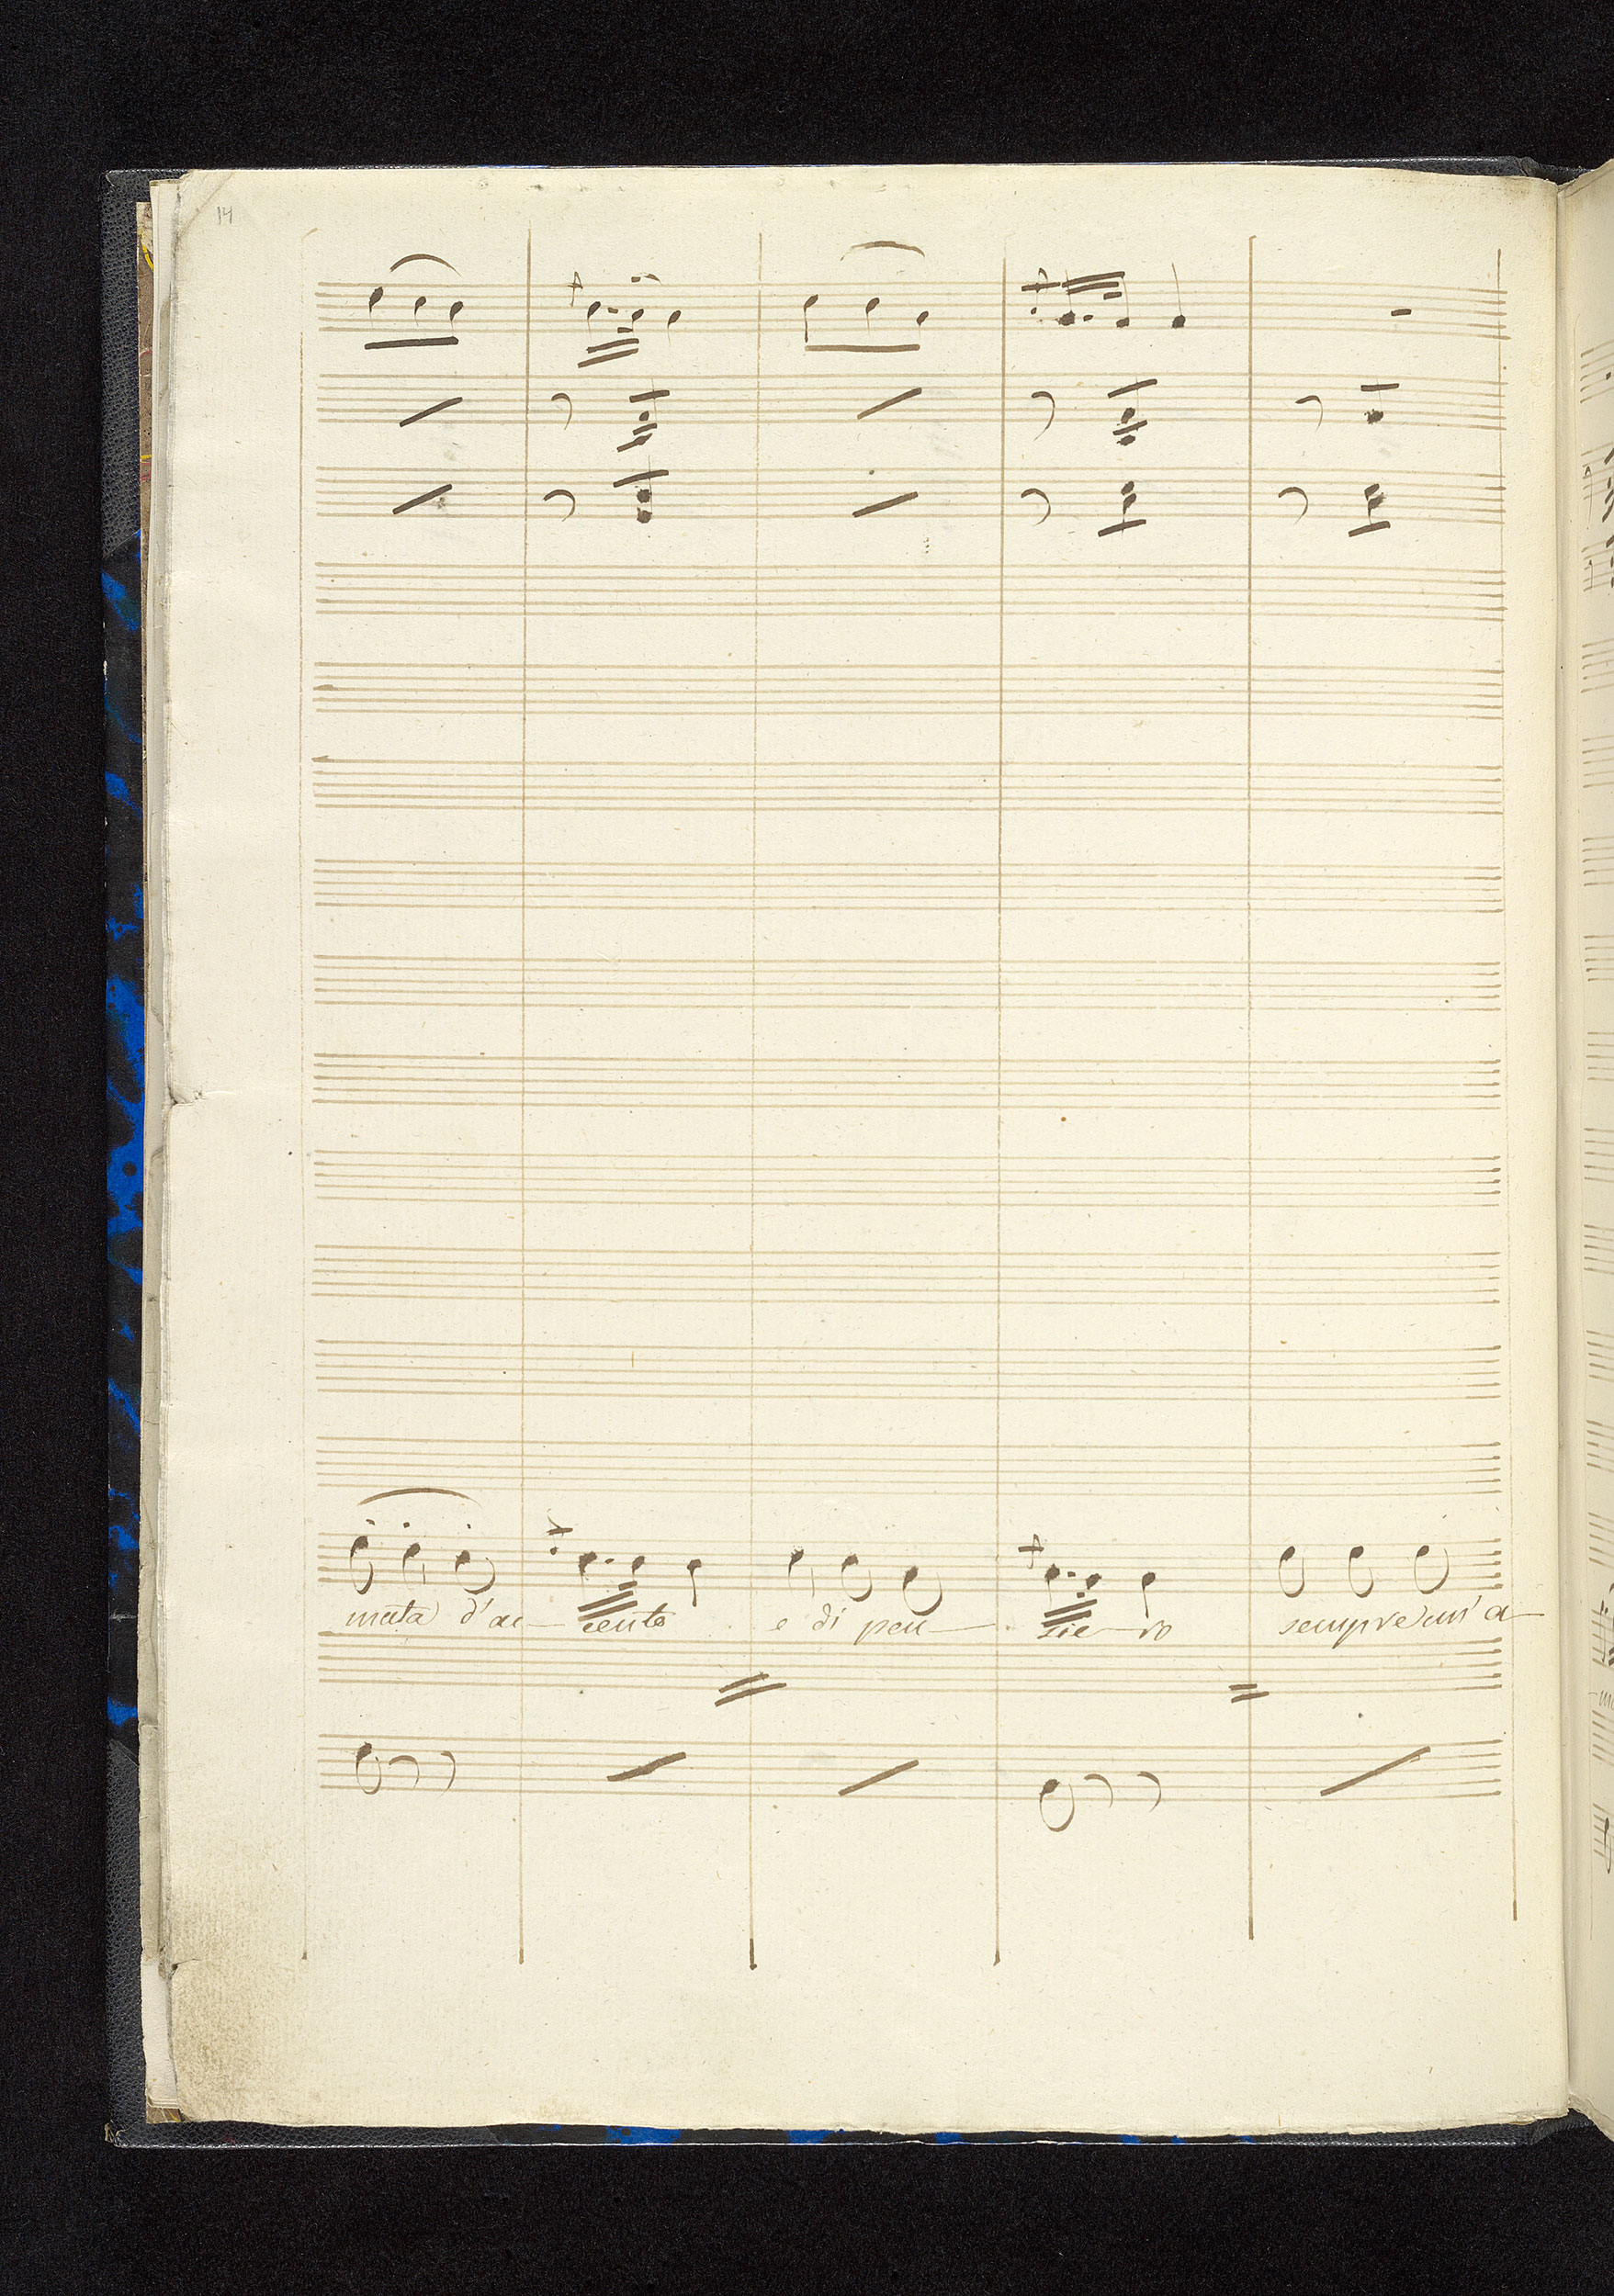 14
muta d'ac- cento e di pen- sie- ro sempre un' a-